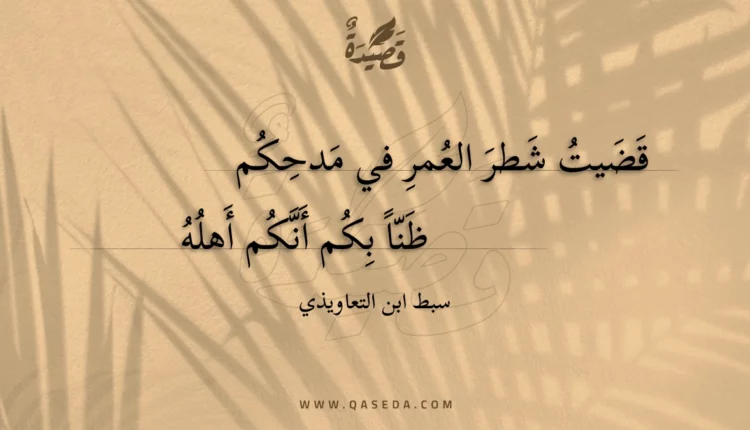 قَصِيدَةٌ
قَضَيتُ شَطرَ العُمرِ في مَدحِكُم
ظَنّاً بِكُم أَنَّكُم أَهلُهُ
سبط ابن التعاويذي
WWW.QASEDA.COM